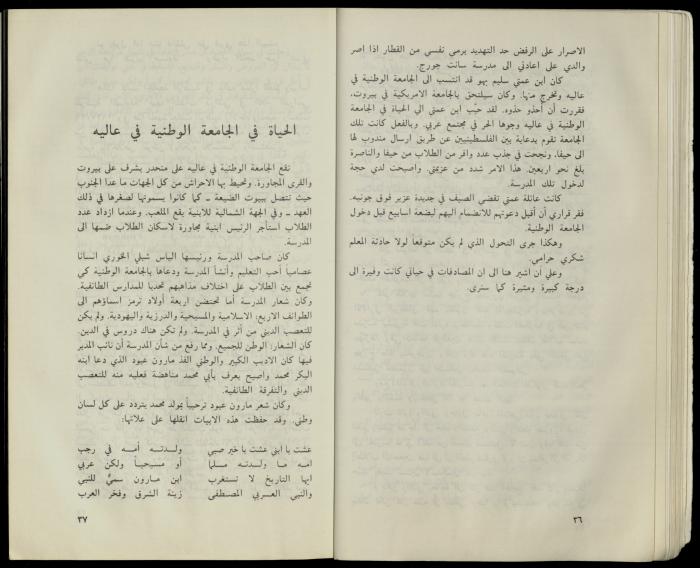 الاصرار على الرفض حد التهديد برمي نفسي من القطار اذا اصر
والدي على اعادتي الى مدرسة سانت جورج.
كان ابن عمتي سليم بهو قد انتسب الى الجامعة الوطنية في
عاليه وتخرج منها. وكان سيلتحق بالجامعة الامريكية في بيروت،
فقررت أن أحذو حذوه. لقد حبّب ابن عمتي الي الحياة في الجامعة
الوطنية في عاليه وجوها الحر في مجتمع عربي. وبالفعل كانت تلك
الجامعة تقوم بدعاية بين الفلسطينيين عن طريق ارسال مندوب لها
الى حيفا، ونجحت في جذب عدد وافر من الطلاب من حيفا والناصرة
بلغ نحو اربعين. هذا الامر شدد من عزيمتي. واصبحت لدي حجة
لدخول تلك المدرسة.
كانت عائلة عمتي تقضي الصيف في جديدة عزير فوق جونيه.
فقر قراري أن أقبل دعوتهم للانضمام اليهم لبضعة اسابيع قبل دخول
الجامعة الوطنية.
وهكذا جرى التحول الذي لم يكن متوقعاً لولا حادثة المعلم
شكري حرامي.
وعلي ان اشير هنا الى ان المصادفات في حياتي كانت وفيرة الى
درجة كبيرة ومثيرة كما سنرى.
٣٦
الحياة في الجامعة الوطنية في عاليه
تقع الجامعة الوطنية في عاليه على منحدر يشرف على بيروت
والقرى المجاورة. وتحيط بها الاحراش من كل الجهات ما عدا الجنوب
حيث تتصل ببيوت الضيعة ـ كما كانوا يسمونها لصغرها في ذلك
العهد ـ وفي الجهة الشمالية للابنية يقع الملعب. وعندما ازداد عدد
الطلاب استأجر الرئيس ابنية مجاورة لاسكان الطلاب ضمها الى
المدرسة.
كان صاحب المدرسة ورئيسها الياس شبلي الخوري انسانا
عصامياً أحب التعليم وأنشأ المدرسة ودعاها بالجامعة الوطنية كي
تجمع بين الطلاب على اختلاف مذاهبهم تحديا للمدارس الطائفية.
وكان شعار المدرسة أما تحتضن اربعة أولاد ترمز اسماؤهم الى
الطوائف الاربع: الاسلامية والمسيحية والدرزية واليهودية. ولم يكن
للتعصب الديني من أثر في المدرسة. ولم تكن هناك دروس في الدين.
كان الشعار: الوطن للجميع. ومما رفع من شأن المدرسة أن نائب المدير
فيها كان الاديب الكبير والوطني الفذ مارون عبود الذي دعا ابنه
البكر محمد واصبح يعرف بأبي محمد مناهضة فعليه منه للتعصب
الديني والتفرقة الطائفية.
وكان شعر مارون عبود ترحيباً بمولد محمد يتردد على كل لسان
وطني. وقد حفظت هذه الابيات انقلها على علاتها:
عشت يا ابني عشت يا خير صبي ولدته أمه في رجب
امه ما ولدته مسلما أو مسيحياً ولكن عربي
ايها التاريخ لا تستغرب ابن مارون سميٌّ للنبي
والنبي العربي المصطفى زينة الشرق وفخر العرب
٣٧